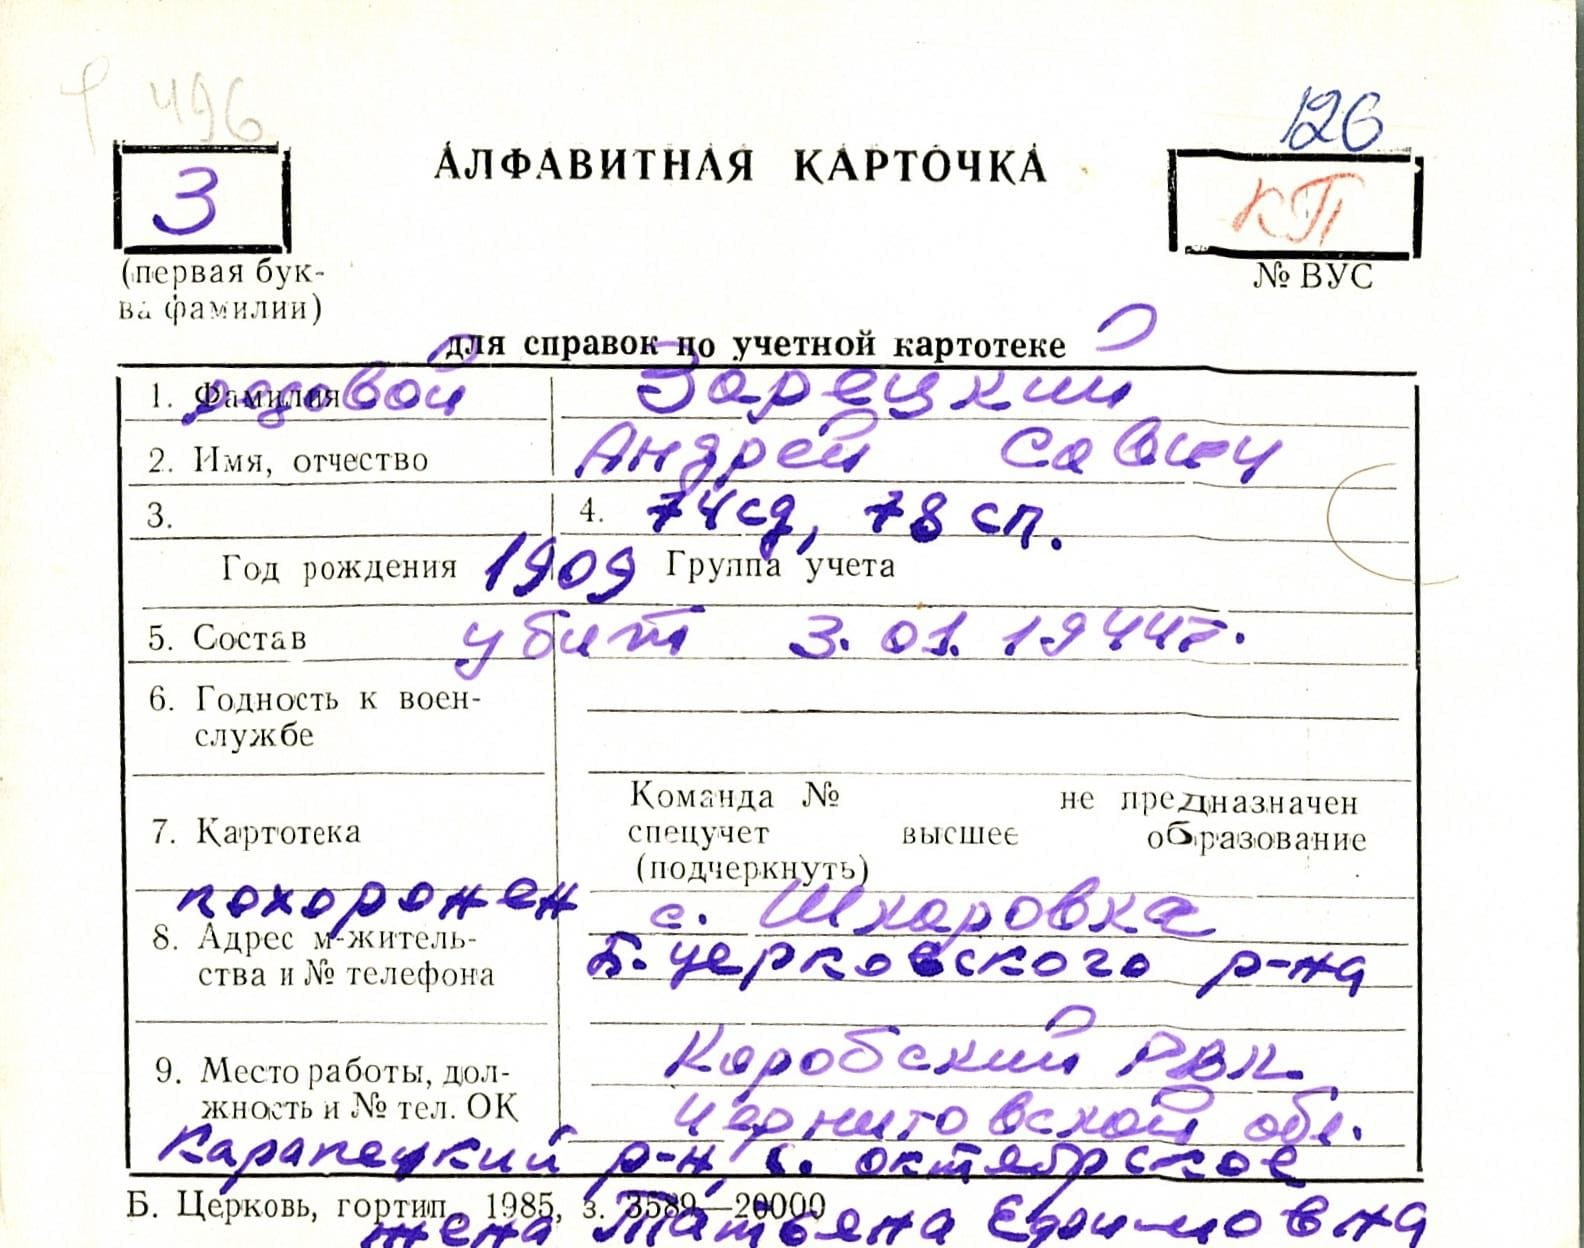 496
126
З
АЛФАВИТНАЯ КАРТОЧКА
КП
(первая бук-
ва фамилии)
№ ВУС
для справок по учетной картотеке
1. Фамилия рядовой Зарецкий
2. Имя, отчество Андрей Савич
3. 4. 74сд, 78 сп.
Год рождения 1909 Группа учета
5. Состав убит 3.01.1944г.
6. Годность к воен-
службе
7. Картотека
Команда № не предназначен
спецучет высшее образование
(подчеркнуть)
похоронен с. Шкаровка
8. Адрес м-житель-
ства и № телефона
Б.церковского р-на
9. Место работы, дол-
жность и № тел. ОК
Коробский РВК
Черниговской обл.
Карапецкий р-н, с. октябрское
Б. Церковь, гортип. 1985, з. 3589—20000
жена Татьяна Ефимовна